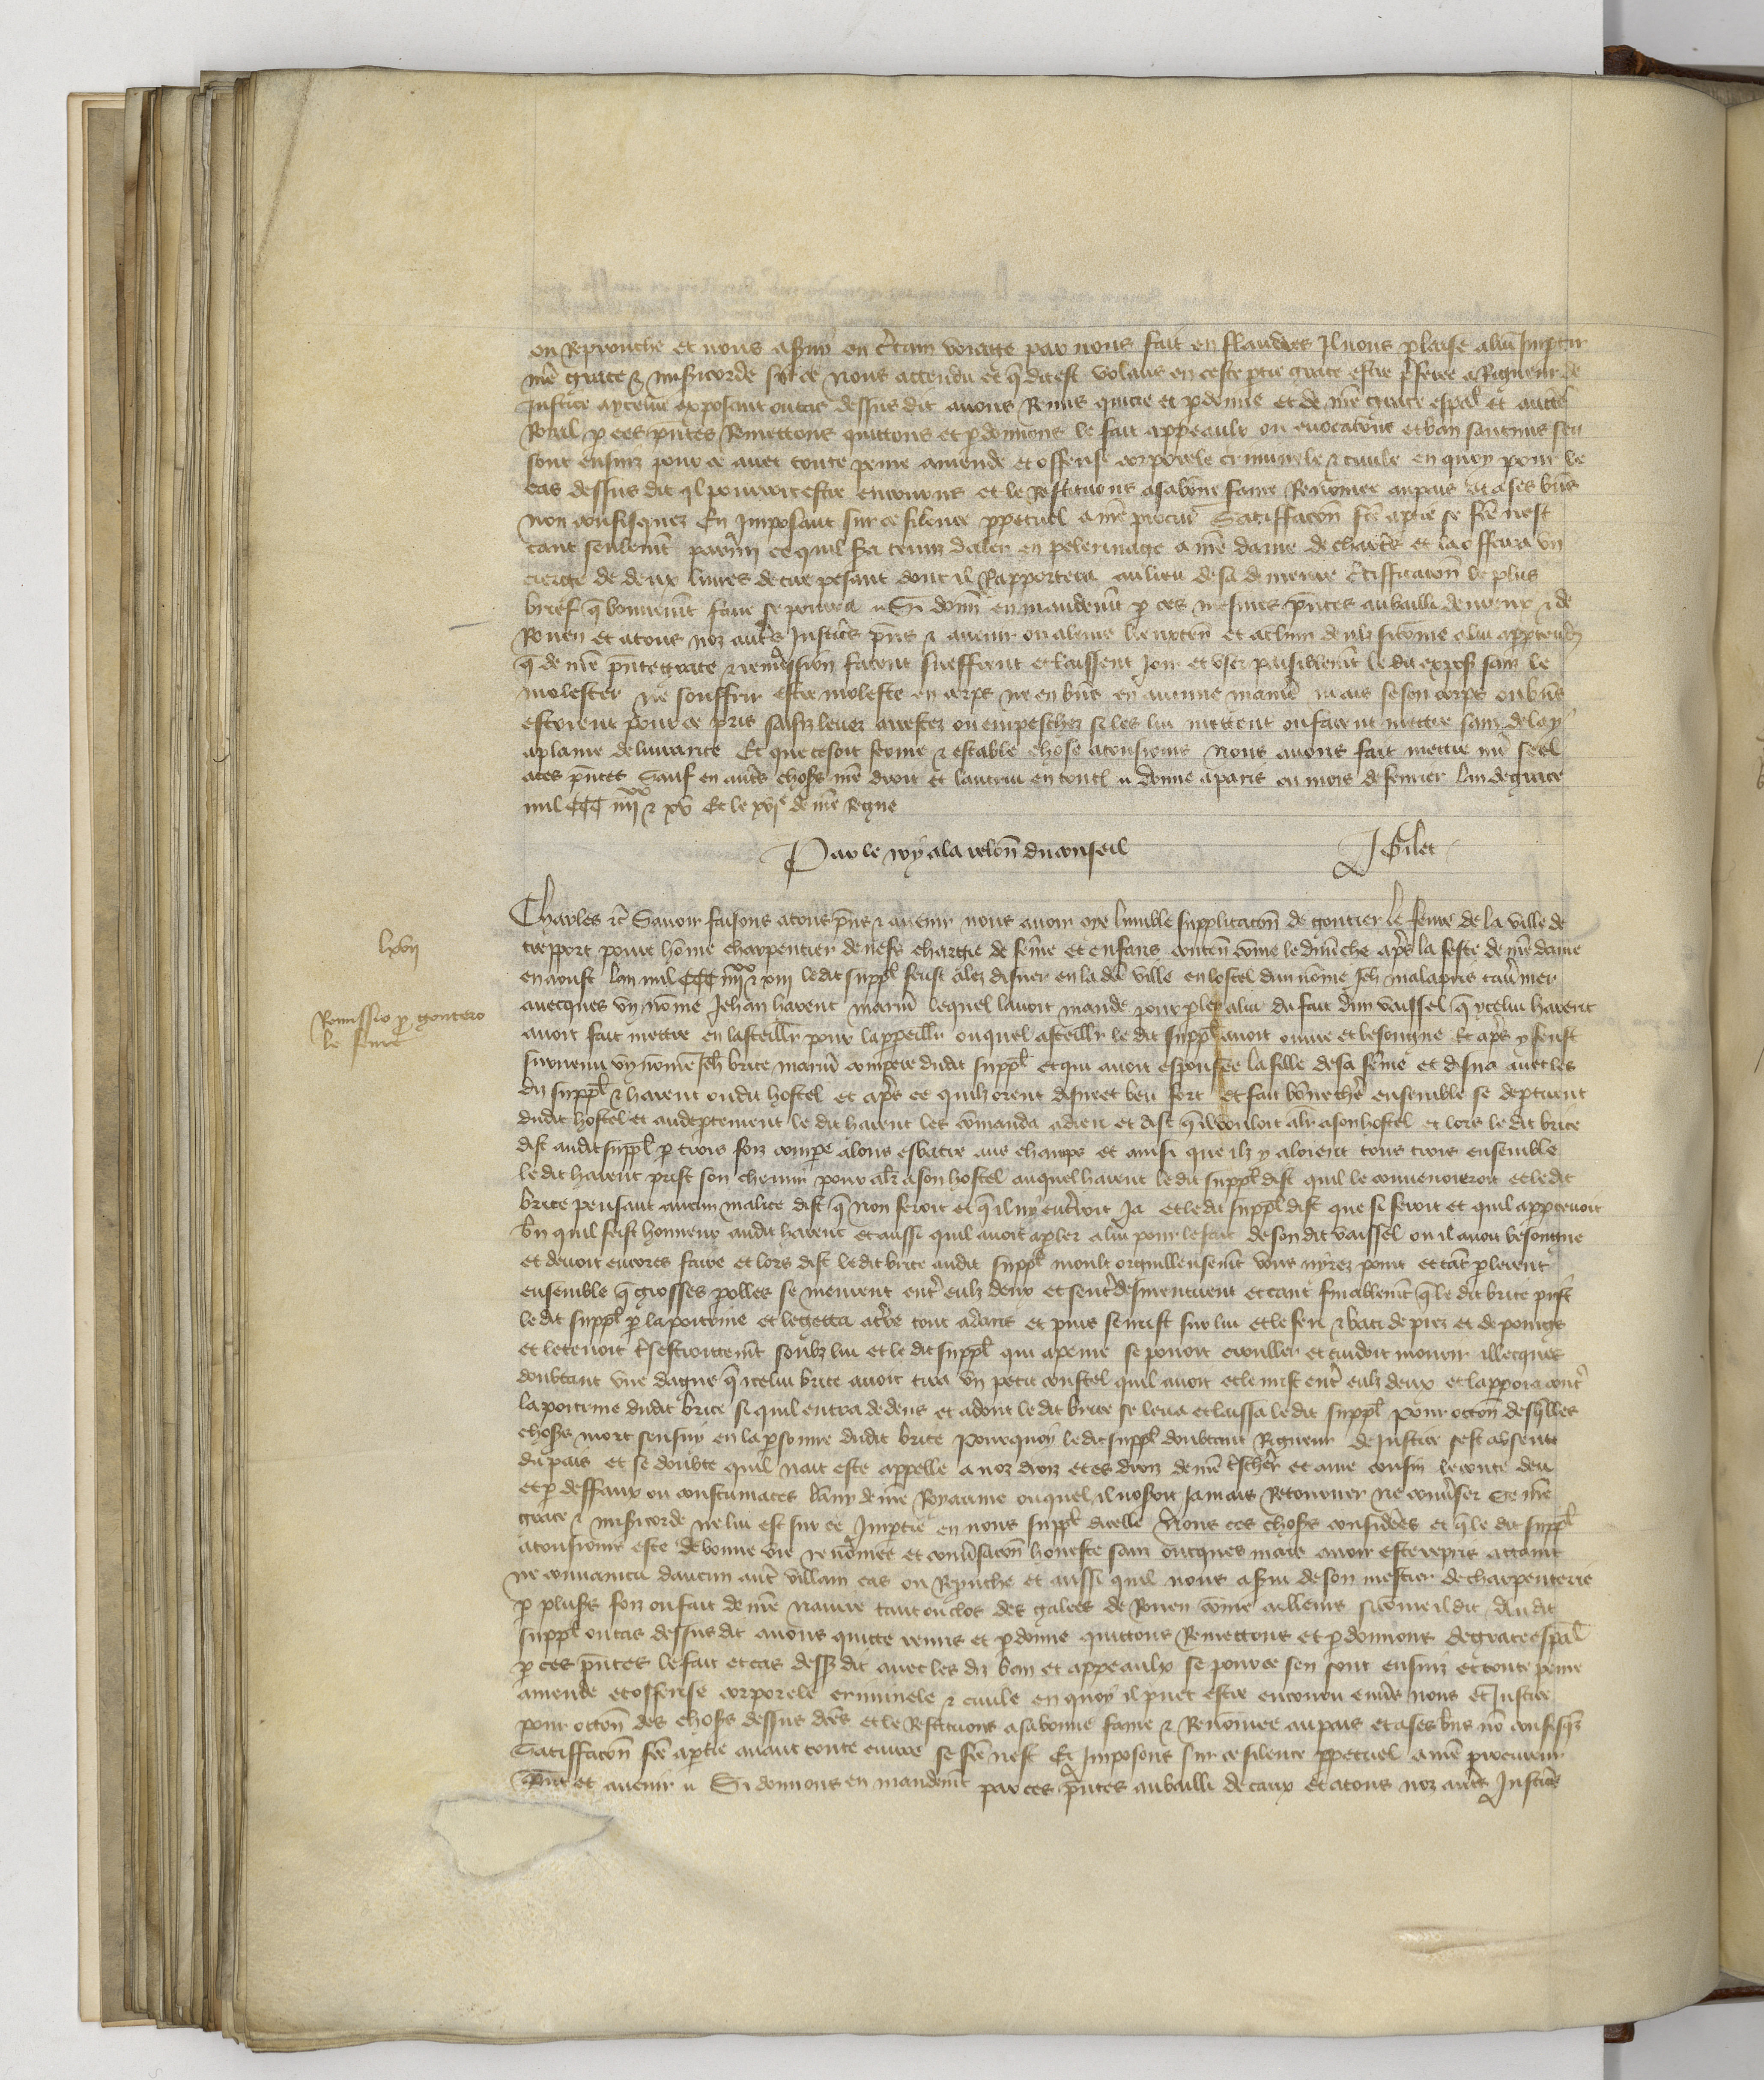 en reprouche et nous a servy en c̃tain voiage par nous fait en flandres Il nous plaise a lui Impartir
nr̃e grace & misericorde sur ce Nous attendu ce q̃ dit est volans en ceste ptie grace estre p̃feree a Rigueur de
Justice a ycelui exposant ou cas dessus dit avons Remis quicte et pdonne et de nr̃e grace espal̃ et auctẽ
Roial p ces pñtes Remettons quittons et pdonnons le fait appeaulx ou evocacõns et ban saucuns sen
sont ensuiz pour ce avec toute peine amende et offense corporele criminele & civile en quoy pour le
cas dessus dit ql pourroit estre encouruz et le Restituons a sa bõne fame Renõmee au pais et a ses bñs
non confisquez En Imposant sur ce silence ppetuel a nr̃e procur̃ Satisffacõn fc̃e a ptie se fc̃e nest
tant seulemt̃ parmi ce quil sera tenuz daler en pelerinage a nr̃e dame de chartr̃s et la offerra un
cierge de deux livres de cire pesant dont il Rapportera au lieu de sa demeure c̃tifficacõn le plus
brief q̃ bonnemt̃ faire se pourra Si donn̄ en mandemt̃ p ces mesmes pñtes au bailli de & de
Rouen et a tous noz autr̃s Justicr̃s pñs & avenir ou a leurs lieuxten̄ et a chun̄ deulx si cõme a lui appten̄dra
q̃ de nr̃e pñte grace & remission facent sueffrent et laissent Joir et user paisiblemt̃ le dit expos̃ sanz le
molester ne souffrir estre moleste en corps ne en bñs en aucune maniẽ mais se son corps ou bñs
estoient pour ce pris saisiz levez arrestez ou empeschez si les lui mettent ou facent mettre sanz delay
a plaine delivrance Et que ce soit ferme & estable chose a tousjours Nous avons fait mettre nr̃e seel
a ces pñtes Sauf en autr̃s choses nr̃e droit et lautrui en tout Donne a paris ou mois de fevrier lan de grace
mil CCC iiiixx & xv Et le xvie de nr̃e Regne
Par le roy a la relõn du conseil J Gilet
lxvii
Charles &c̃ Savoir faisons a tous pñs & avenir nous avoir oye lumble supplicacõn de gontier le fevre de la ville de
treport povre hõme charpentier de nefs chargie de fẽme et enfans conten̄ cõme le dimẽche apr̃s la feste de nr̃e dame
en aoust lan mil CCC iiiixx & xiii le dit suppl̃ feust alez disner en la dc̃e ville en lostel dun nõme Jeh̃ malapris tav̄nier
avecques un nõme Jehan havent marin̄ lequel lavoit mande pour pler a lui du fait dun vaissel q̃ ycelui havent
Remissio p gontero
le fevre
avoit fait mettre en lasteillr̃ pour lappeillr̃ ouquel asteillr̃ le dit suppl̃ avoit ouvre et besoingne Et aps y feust
survenu un nõme Jeh̃ brice marin̄ compere dudit suppl̃ et qui avoit espousee la fille de sa fẽme et disna avec les
diz suppl̃ & havent oudit hostel et apr̃s ce quilz orent disne et beu fort et fait bõne chr̃e ensemble se deptirent
dudit hostel et au deptement le dit havent les cõmanda a dieu et dist q̃ il vouloit alr̃ a son hostel et lors le dit brice
dist audit suppl̃ p trois foiz compe alons esbatre aus champs et ainsi que ilz y aloient tous trois ensemble
le dit havent prist son chemin pour alr̃ a son hostel auquel havent le dit suppl̃ dist quil le convoieroit et le dit
brice pensant aucun malice dist q̃ non feroit et q̃ il ny entr̃roit Ja et le dit suppl̃ dist que si feroit et quil apptenoit
bn̄ quil feist honneur audit havent et aussi quil avoit a pler a lui pour le fait de son dit vaissel ou il avoit besongne
et devoit encores faire et lors dist le dit brice audit suppl̃ moult orguilleusemt̃ vous nyrez point et tãt plerent
ensemble q̃ grosses polles se meurent entr̃ eulz deux et sentr̃desmentirent et tant finablemt̃ q̃ le dit brice prist
le dit suppl̃ p la poitrine et le getta a tr̃re tout adans et puis se mist sur lui et le feri & bati de piez et de poings
et le tenoit tr̃sestroittemt̃ soubz lui et le dit suppl̃ qui a peine se povoit croullier et cuidoit mourir illecques
doubtant une dague q̃ icelui brice avoit tira un petit coustel quil avoit et le mist entr̃ eulz deux et lapporta contr̃
la poitrine dudit brice si quil entra dedens et adont le dit brice se leva et laissa le dit suppl̃ Pour occõn desq̃lles
choses mort sensuy en la psonne dudit brice Pourquoy le dit suppl̃ doubtant Rigueur de Justice sest absente
du pais et se doubte quil nait este appelle a noz droiz et es droiz de nr̃e tr̃scher et ame cousin le conte deu
et p deffaux ou contumaces bãny de nr̃e Royaume ouquel il noseroit Jamais Retourner ne conv̄ser se nr̃e
grace & misericorde ne lui est sur ce Impartie en nous suppl̃ dicelle Nous ces choses considerees et q̃ le dit suppl̃
a tousjours este de bonne vie renõmee et conv̄sacõn honeste sanz oncques mais avoir este repris attaint
ne convaincu daucun autr̃ villain cas ou Reprouche et aussi quil nous a servi de son mestier de charpenterie
p pluss̃ foiz ou fait de nr̃e navire tant ou clos des galees de Rouen cõme ailleurs si cõme il dit Au dit
suppl̃ ou cas dessus dit avons quicte remis et pdonne quittons Remettons et pdonnons de grace espal̃
p ces pñtes le fait et cas dessus dit avec les diz ban et appeaulx se pour ce sen sont ensuiz et toute peine
amende et offense corporele criminele & civile en quoy il puet estre encouru env̄s nous et Justice
pour occõn des choses dessus dc̃es et le Restituons a sa bonne fame & Renõmee au pais et a ses bñs nõ confisq̃z
Satisffacõn fc̃e a ptie avant toute euvre se fc̃e nest Et Imposons sur ce silence ppetuel a nr̃e procureur
pñt et avenir Si donnons en mandemt̃ par ces pñtes au bailli de caux et a tous noz autr̃s Justicr̃s